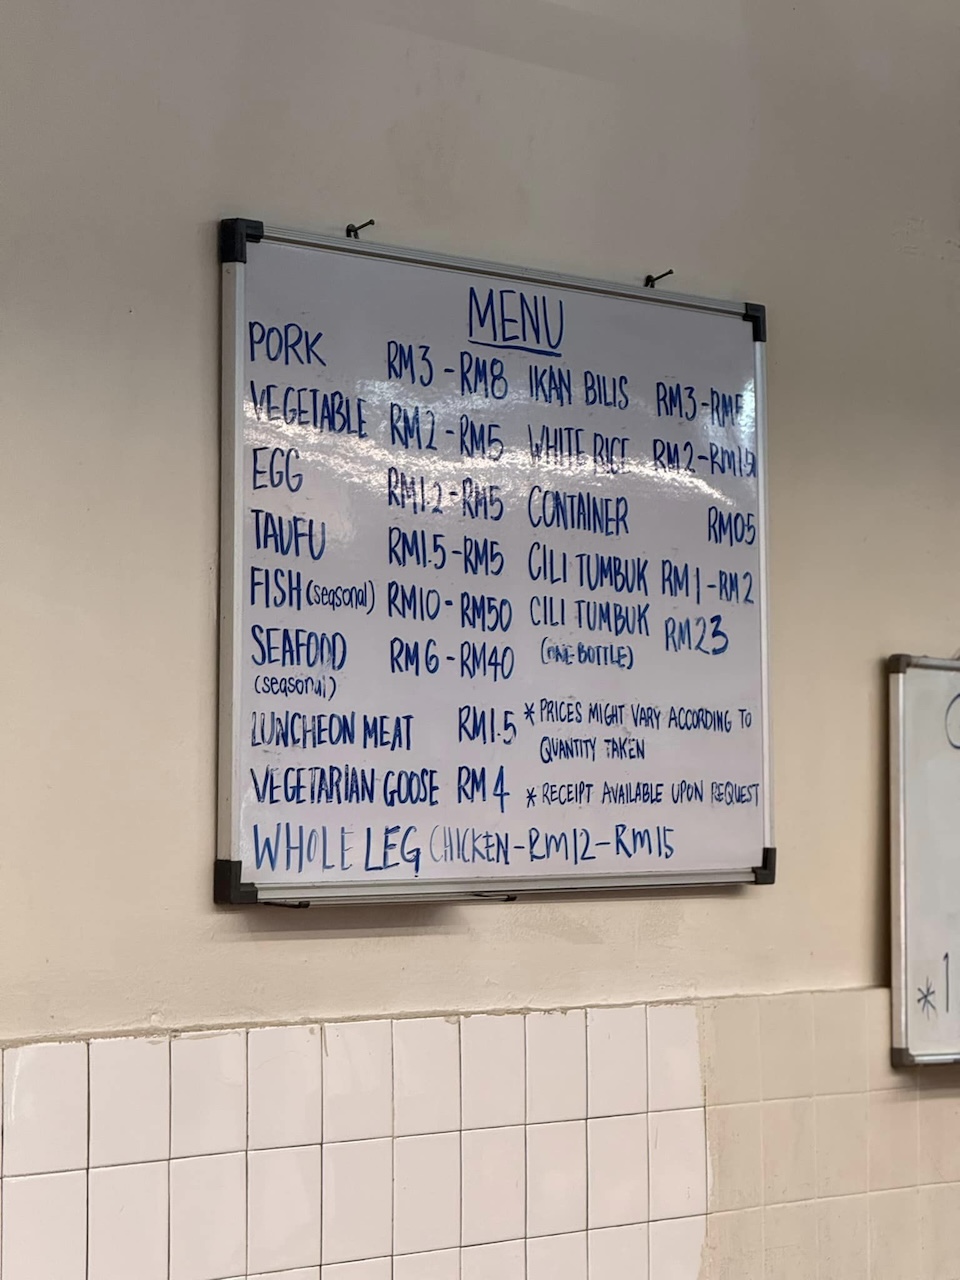 MENU
PORK RM3 - RM8
VEGETABLE RM2 - RM5
EGG RM1.2 - RM5
TAUFU RM1.5 - RM5
FISH (seasonal) RM10 - RM50
SEAFOOD RM6 - RM40
(seasonal)
LUNCHEON MEAT RM1.5
VEGETARIAN GOOSE RM4
IKAN BILIS RM3 -
WHITE RICE RM2 -
CONTAINER RM05
CILI TUMBUK RM1 - RM2
CILI TUMBUK RM23
(ONE BOTTLE)
* PRICES MIGHT VARY ACCORDING TO
QUANTITY TAKEN
* RECEIPT AVAILABLE UPON REQUEST
WHOLE LEG CHICKEN - RM12 - RM15
* 1